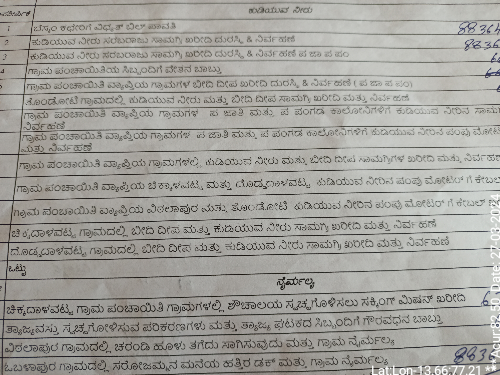 ಕುಡಿಯುವ ನೀರು
1 ಬೆಸ್ಕಾಂ ಕಛೇರಿಗೆ ವಿದ್ಯುತ್ ಬಿಲ್ ಪಾವತಿ
2 ಕುಡಿಯುವ ನೀರು ಸರಬರಾಜು ಸಾಮಗ್ರಿ ಖರೀದಿ ದುರಸ್ಥಿ & ನಿರ್ವಹಣೆ 8836
3 ಕುಡಿಯುವ ನೀರು ಸರಬರಾಜು ಸಾಮಗ್ರಿ ಖರೀದಿ ದುರಸ್ಥಿ & ನಿರ್ವಹಣೆ ಪ ಜಾ ಪ ಪಂ
4 ಗ್ರಾಮ ಪಂಚಾಯಿತಿಯ ಸಿಬ್ಬಂದಿಗೆ ವೇತನ ಬಾಬ್ತು
ಗ್ರಾಮ ಪಂಚಾಯಿತಿ ವ್ಯಾಪ್ತಿಯ ಗ್ರಾಮಗಳ ಬೀದಿ ದೀಪ ಖರೀದಿ ದುರಸ್ಥಿ & ನಿರ್ವಹಣೆ ( ಪ ಜಾ ಪ ಪಂ)
ತೊಂಡೋಟಿ ಗ್ರಾಮದಲ್ಲಿ ಕುಡಿಯುವ ನೀರು ಮತ್ತು ಬೀದಿ ದೀಪ ಸಾಮಗ್ರಿ ಖರೀದಿ ಮತ್ತು ನಿರ್ವಹಣೆ
ಗ್ರಾಮ ಪಂಚಾಯಿತಿ ವ್ಯಾಪ್ತಿಯ ಗ್ರಾಮಗಳ ಪ ಜಾತಿ ಮತ್ತು ಪ ಪಂಗಡ ಕಾಲೋನಿಗಳಿಗೆ ಕುಡಿಯುವ ನೀರಿನ
ನಿರ್ವಹಣೆ
ಗ್ರಾಮ ಪಂಚಾಯಿತಿ ವ್ಯಾಪ್ತಿಯ ಗ್ರಾಮಗಳ ಪ ಜಾತಿ ಮತ್ತು ಪ ಪಂಗಡ ಕಾಲೋನಿಗಳಿಗೆ ಕುಡಿಯುವ ನೀರಿನ ಪಂಪು
ಮತ್ತು ನಿರ್ವಹಣೆ
ಗ್ರಾಮ ಪಂಚಾಯಿತಿ ವ್ಯಾಪ್ತಿಯ ಗ್ರಾಮಗಳಲ್ಲಿ ಕುಡಿಯುವ ನೀರು ಮತ್ತು ಬೀದಿ ದೀಪ ಸಾಮಗ್ರಿಗಳ ಖರೀದಿ ಮತ್ತು
ಗ್ರಾಮ ಪಂಚಾಯಿತಿ ವ್ಯಾಪ್ತಿಯ ಚಿಕ್ಕದಾಳವಟ್ಟ ಮತ್ತು ದೊಡ್ಡದಾಳವಟ್ಟ ಕುಡಿಯುವ ನೀರಿನ ಪಂಪು ಮೋಟಾರ್ ಗೆ ಕೇಬಲ್
ಗ್ರಾಮ ಪಂಚಾಯಿತಿ ವ್ಯಾಪ್ತಿಯ ವಿಠಲಾಪುರ ಮತ್ತು ತೊಂಡೋಟಿ ಕುಡಿಯುವ ನೀರಿನ ಪಂಪು ಮೋಟರ್ ಗೆ ಕೇಬಲ್
ಚಿಕ್ಕದಾಳವಟ್ಟ ಗ್ರಾಮದಲ್ಲಿ ಬೀದಿ ದೀಪ ಮತ್ತು ಕುಡಿಯುವ ನೀರು ಸಾಮಗ್ರಿ ಖರೀದಿ ಮತ್ತು ನಿರ್ವಹಣೆ
ದೊಡ್ಡದಾಳವಟ್ಟ ಗ್ರಾಮದಲ್ಲಿ ಬೀದಿ ದೀಪ ಮತ್ತು ಕುಡಿಯುವ ನೀರು ಸಾಮಗ್ರಿ ಖರೀದಿ ಮತ್ತು ನಿರ್ವಹಣೆ
ಒಟ್ಟು
ನೈರ್ಮಲ್ಯ
ಚಿಕ್ಕದಾಳವಟ್ಟ ಗ್ರಾಮ ಪಂಚಾಯಿತಿ ಗ್ರಾಮಗಳಲ್ಲಿ ಶೌಚಾಲಯ ಸ್ವಚ್ಛಗೊಳಿಸಲು ಸಕ್ಕಿಂಗ್ ಮಿಷನ್ ಖರೀದಿ
ತ್ಯಾಜ್ಯವಸ್ತು ಸ್ವಚ್ಛಗೋಳಿಸುವ ಪರಿಕರಣಗಳು ಮತ್ತು ತ್ಯಾಜ್ಯ ಘಟಕದ ಸಿಬ್ಬಂದಿಗೆ ಗೌರವಧನ ಬಾಬ್ತು
ವಿಠಲಾಪುರ ಗ್ರಾಮದಲ್ಲಿ ಚರಂಡಿ ಹೂಳು ತೆಗೆದು ಸಾಗಿಸುವುದು ಮತ್ತು ಗ್ರಾಮ ನೈರ್ಮಲ್ಯ
ಓಬಳಾಪುರ ಗ್ರಾಮದಲ್ಲಿ ಸರೋಜಮ್ಮನ ಮನೆಯ ಹತ್ತಿರ ಡಕ್ ಮತ್ತು ಗ್ರಾಮ ನೈರ್ಮಲ್ಯ 8836
Lat:Lon-13.66:77.21